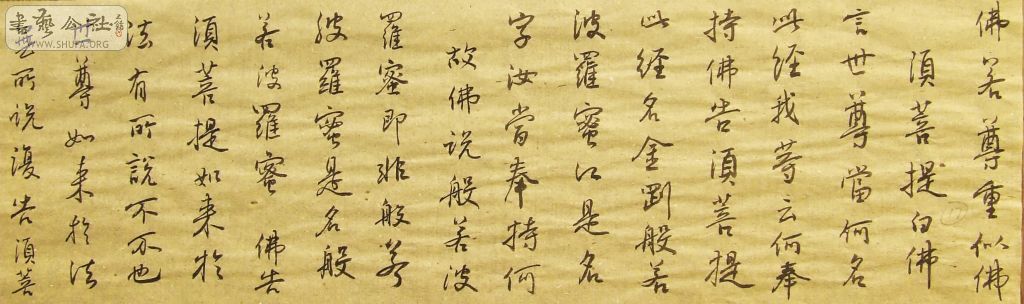 佛若尊重似佛
須菩提白佛
言世尊當何名
此経我等云何奉
持佛告須菩提
此経名金剛般若
波羅蜜以是名
字汝當奉持何
故佛说般若波
羅蜜即非般若
波羅蜜是名般
若波羅蜜 佛告
須菩提如来於
法有所說不不也
世尊如来於法
無所说復告須菩
書藝公社
WWW.SHUFA.ORG